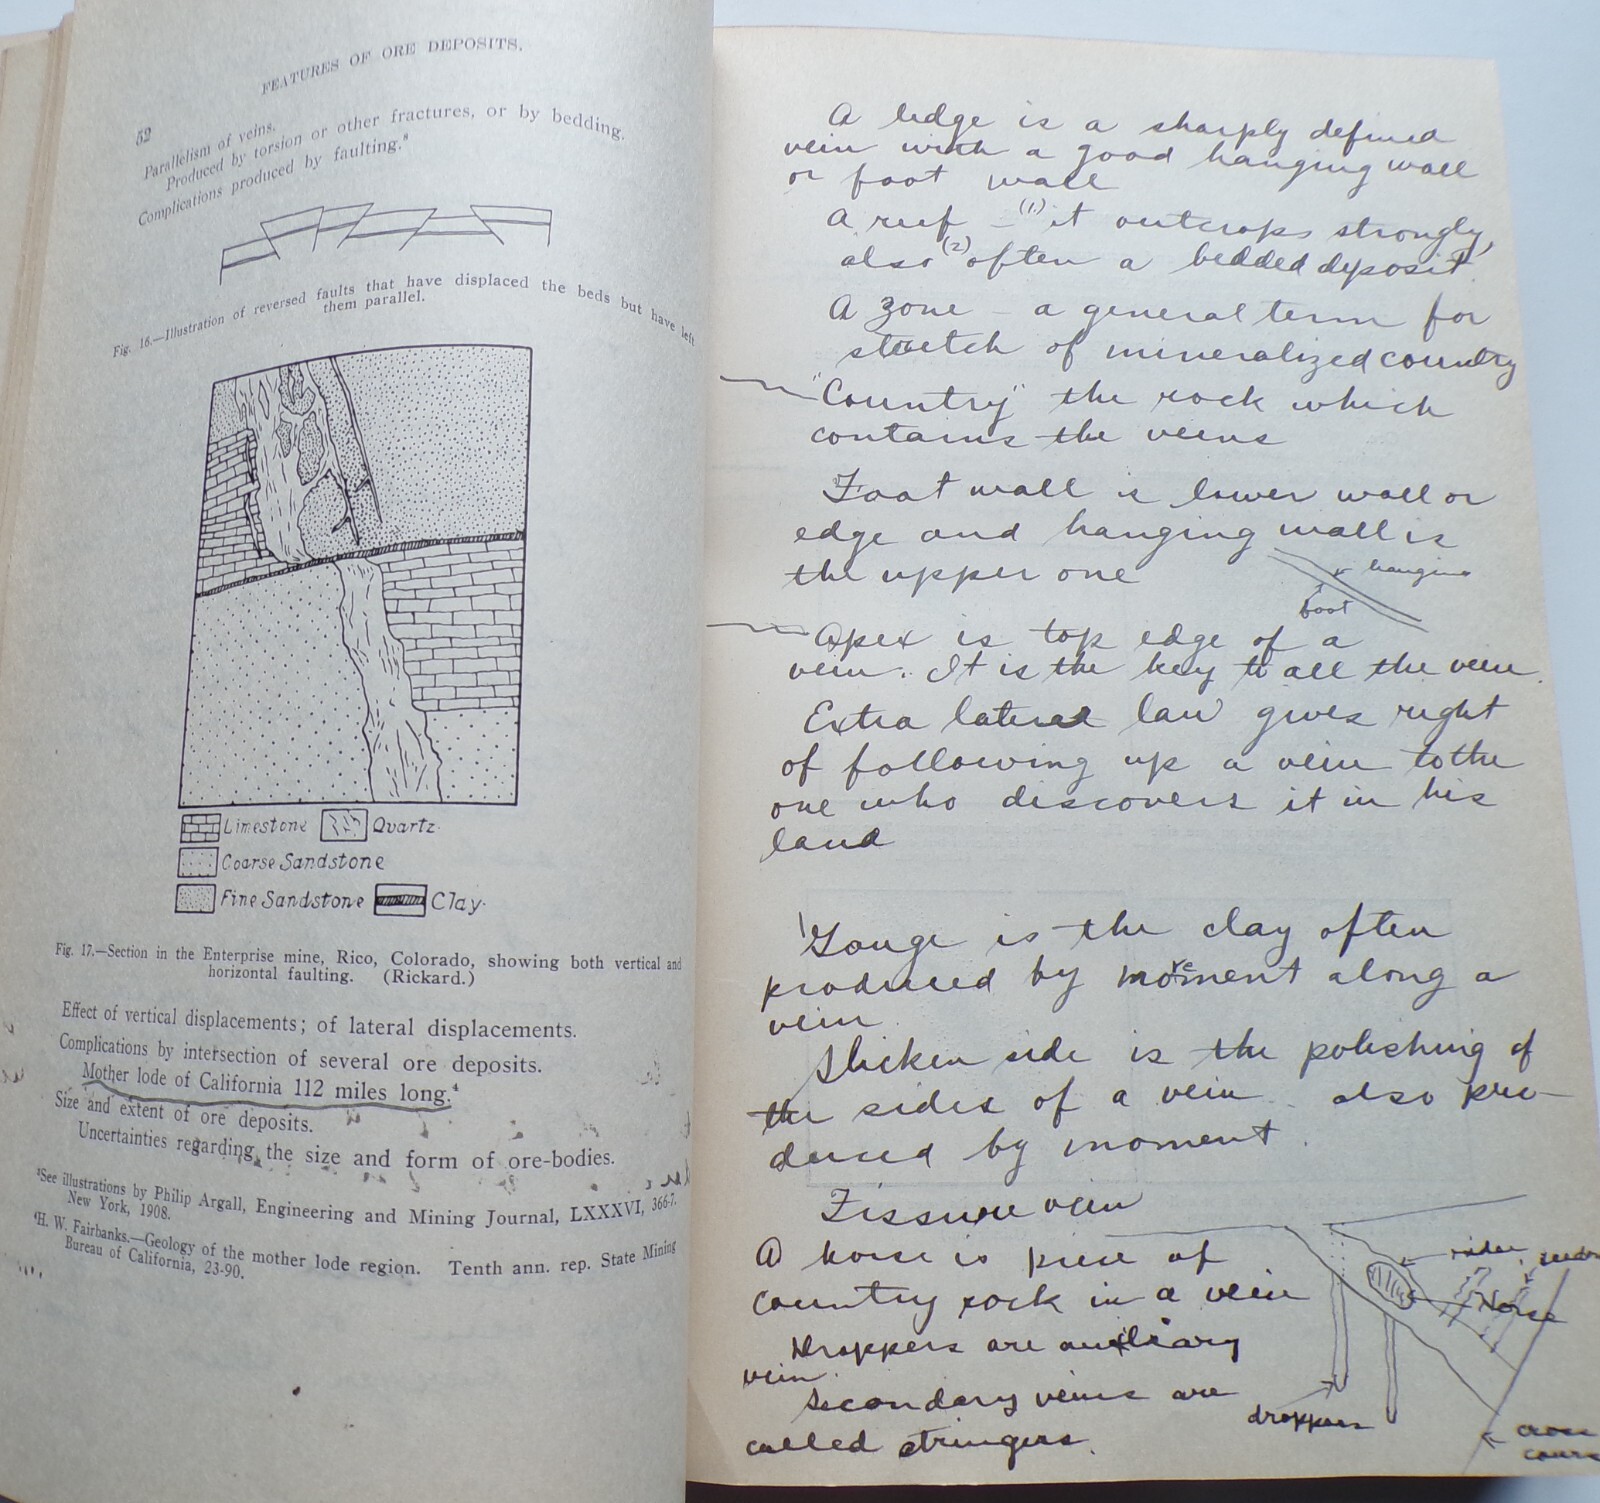 FEATURES OF ORE DEPOSITS.
52
Parallelism of veins.
Produced by torsion or other fractures, or by bedding.
Complications produced by faulting.³
Fig. 16.—Illustration of reversed faults that have displaced the beds but have left
them parallel.
Limestone Quartz.
Coarse Sandstone
Fine Sandstone Clay.
Fig. 17.—Section in the Enterprise mine, Rico, Colorado, showing both vertical and
horizontal faulting. (Rickard.)
Effect of vertical displacements; of lateral displacements.
Complications by intersection of several ore deposits.
Mother lode of California 112 miles long.⁴
Size and extent of ore deposits.
Uncertainties regarding the size and form of ore-bodies.
³See illustrations by Philip Argall, Engineering and Mining Journal, LXXXVI, 366-7.
New York, 1908.
⁴H. W. Fairbanks.—Geology of the mother lode region. Tenth ann. rep. State Mining
Bureau of California, 23-90.
A ledge is a sharply defined
vein with a good hanging wall
or foot wall
A reef – (1) it outcrops strongly,
also (2) often a bedded deposit
A zone – a general term for
stretch of mineralized country
"Country" the rock which
contains the veins
Foot wall is lower wall or
edge and hanging wall is
the upper one
hanging
foot
Apex is top edge of a
vein. It is the key to all the vein.
Extra lateral law gives right
of following up a vein to the
one who discovers it in his
land
Gouge is the clay often
produced by movement along a
vein.
Slicken side is the polishing of
the sides of a vein. also pro-
duced by moment.
Fissure vein
A horse is piece of
country rock in a vein
Droppers are auxiliary
vein.
Secondary veins are
called stringers.
rider
Horse
droppers
cross
cours